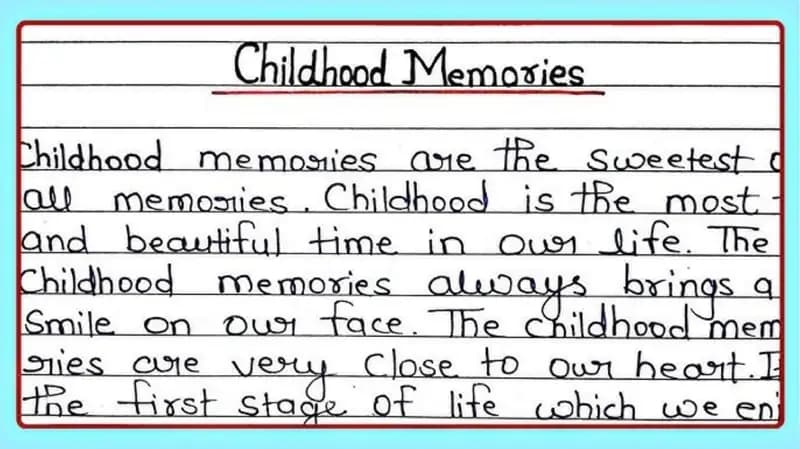 Childhood Memories
Childhood memories are the sweetest
all memories. Childhood is the most
and beautiful time in our life. The
Childhood memories always brings a
Smile on our face. The childhood mem
ries are very close to our heart.
the first stage of life which we en